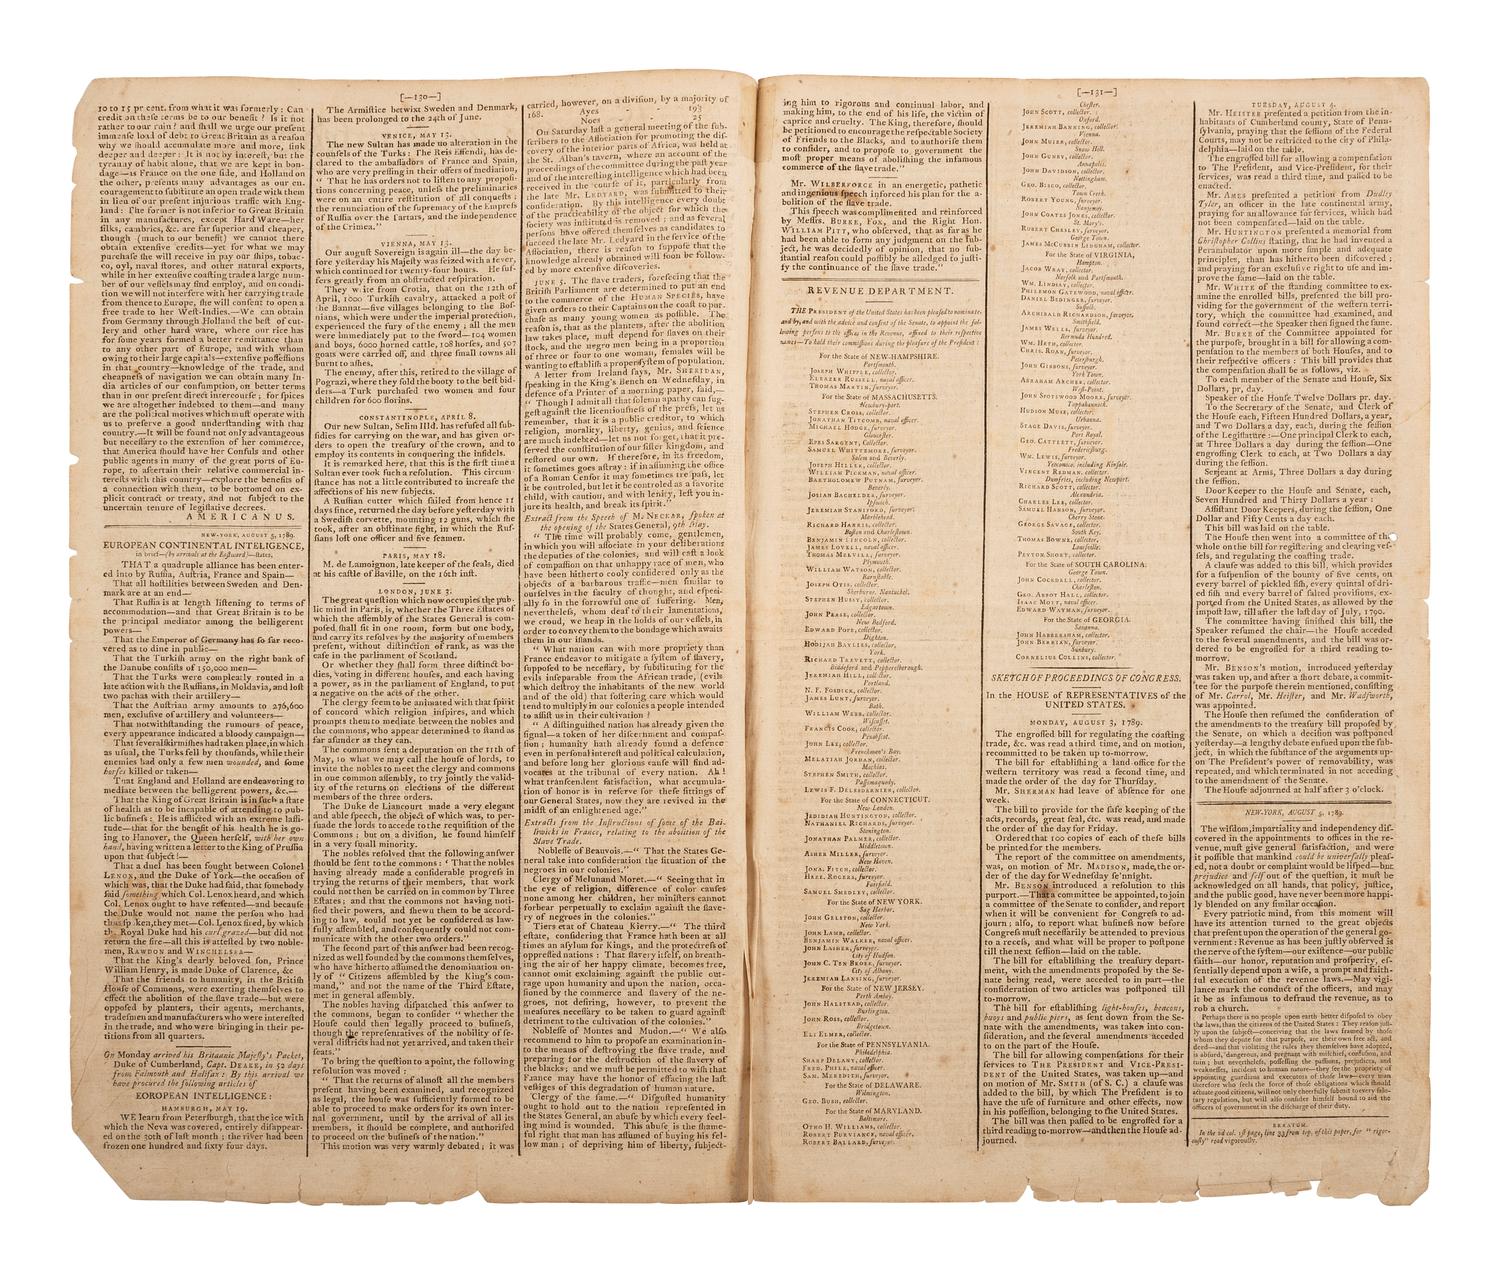 [—130—]
10 to 15 pr cent. from what it was formerly: Can
credit on theſe terms be to our benefit? Is it not
rather to our ruin? and ſhall we urge our preſent
immenſe load of debt to Great Britain as a reaſon
why we ſhould accumulate more and more, ſink
deeper and deeper: It is not by intereſt, but the
tyranny of habit alone, that we are kept in bon-
dage—is France on the one ſide, and Holland on
the other, preſents many advantages as our en-
couragement to ſubſtitute an open trade with them
in lieu of our preſent injurious traffic with Eng-
land: The former is not inferior to Great Britain
in any manufactures, except Hard Ware—her
ſilks, cambrics, &c. are far ſuperior and cheaper,
though (much to our benefit) we cannot there
obtain extenſive credits—yet for what we may
purchaſe ſhe will receive in pay our ſhips, tobac-
co, oyl, naval ſtores, and other natural exports,
while in her extenſive coaſting trade a large num-
ber of our veſſels may find employ, and on condi-
tion we will not interfere with her carrying trade
from thence to Europe, ſhe will conſent to open a
free trade to her Weſt-Indies.—We can obtain
from Germany through Holland the beſt of cut-
lery and other hard ware, where our rice has
for ſome years formed a better remittance than
to any other part of Europe, and with whom
owing to their large capitals—extenſive poſſeſſions
in that country—knowledge of the trade, and
cheapneſs of navigation we can obtain many In-
dia articles of our conſumption, on better terms
than in our preſent direct intercourſe; for ſpices
we are altogether indebted to them—and many
are the political motives which muſt operate with
us to preſerve a good underſtanding with that
country.—It will be found not only advantageous
but neceſſary to the extenſion of her commerce,
that America ſhould have her Conſuls and other
public agents in many of the great ports of Eu-
rope, to aſcertain their relative commercial in-
tereſts with this country—explore the benefits of
a connection with them, to be bottomed on ex-
plicit contract or treaty, and not ſubject to the
uncertain tenure of legiſlative decrees.
AMERICANUS.
NEW-YORK, AUGUST 5, 1789.
EUROPEAN CONTINENTAL INTELIGENCE,
in brief—(by arrivals at the Eaſtward)—ſtates,
THAT a quadruple alliance has been enter-
ed into by Ruſſia, Auſtria, France and Spain—
That all hoſtilities between Sweden and Den-
mark are at an end—
That Ruſſia is at length liſtening to terms of
accommodation—and that Great Britain is to be
the principal mediator among the belligerent
powers—
That the Emperor of Germany has ſo far reco-
vered as to dine in public—
That the Turkiſh army on the right bank of
the Danube conſiſts of 150,000 men—
That the Turks were compleatly routed in a
late action with the Ruſſians, in Moldavia, and loſt
two pachas with their artillery—
That the Auſtrian army amounts to 276,600
men, excluſive of artillery and volunteers—
That notwithſtanding the rumours of peace,
every appearance indicated a bloody campaign—
That ſeveral ſkirmiſhes had taken place, in which
as uſual, the Turks fell by thouſands, while their
enemies had only a few men wounded, and ſome
horſes killed or taken—
That England and Holland are endeavoring to
mediate between the belligerent powers, &c.—
That the King of Great Britain is in ſuch a ſtate
of health as to be incapable of attending to pub-
lic buſineſs: He is afflicted with an extreme laſſi-
tude—that for the benefit of his health he is go-
ing to Hanover, the Queen herſelf, with her own
hand, having written a letter to the King of Pruſſia
upon that ſubject!—
That a duel has been fought between Colonel
LENOX, and the Duke of York—the occaſion of
which was, that the Duke had ſaid, that ſomebody
ſaid ſomething which Col. Lenox heard, and which
Col. Lenox ought to have reſented—and becauſe
the Duke would not name the perſon who had
thus ſpoken, they met—Col. Lenox fired, by which
the Royal Duke had his curl grazed—but did not
return the fire—all this is atteſted by two noble-
men, RAWDON and WINCHELSEA—
That the King's dearly beloved ſon, Prince
William Henry, is made Duke of Clarence, &c
That the friends to humanity, in the Britiſh
Houſe of Commons, were exerting themſelves to
effect the abolition of the ſlave trade—but were
oppoſed by planters, their agents, merchants,
tradeſmen and manufacturers who were intereſted
in the trade, and who were bringing in their pe-
titions from all quarters.
On Monday arrived his Britannic Majeſty's Packet,
Duke of Cumberland, Capt. DEAKE, in 52 days
from Falmouth and Halifax: By this arrival we
have procured the following articles of
EOROPEAN INTELIGENCE:
HAMBURGH, MAY 19.
WE learn from Peterſburgh, that the ice with
which the Neva was covered, entirely diſappear-
ed on the 30th of laſt month; the river had been
frozen one hundred and ſixty four days.
The Armiſtice betwixt Sweden and Denmark,
has been prolonged to the 24th of June.
VENICE, MAY 13.
The new Sultan has made no alteration in the
counſels of the Turks: The Reis Effendi, has de-
clared to the ambaſſadors of France and Spain,
who are very preſſing in their offers of mediation,
"That he has orders not to liſten to any propoſi-
tions concerning peace, unleſs the preliminaries
were on an entire reſtitution of all conqueſts;
the renunciation of the ſupremacy of the Empreſs
of Ruſſia over the Tartars, and the independence
of the Crimea."
VIENNA, MAY 13.
Our auguſt Sovereign is again ill—the day be-
fore yeſterday his Majeſty was ſeized with a fever,
which continued for twenty-four hours. He ſuf-
fers greatly from an obſtructed reſpiration.
They write from Crotia, that on the 12th of
April, 1000 Turkiſh cavalry, attacked a poſt of
the Bannat—five villages belonging to the Boſ-
nians, which were under the imperial protection,
experienced the fury of the enemy; all the men
were immediately put to the ſword—104 women
and boys, 6000 horned cattle, 108 horſes, and 507
goats were carried off, and three ſmall towns all
burnt to aſhes,
The enemy, after this, retired to the village of
Pograzi, where they ſold the booty to the beſt bid-
ders—a Turk purchaſed two women and four
children for 600 florins.
CONSTANTINOPLE, APRIL 8.
Our new Sultan, Selim IIId. has refuſed all ſub-
ſidies for carrying on the war, and has given or-
ders to open the treaſury of the crown, and to
employ its contents in conquering the infidels.
It is remarked here, that this is the firſt time a
Sultan ever took ſuch a reſolution. This circum-
ſtance has not a little contributed to increaſe the
affections of his new ſubjects.
A Ruſſian cutter which ſailed from hence 11
days ſince, returned the day before yeſterday with
a Swediſh corvette, mounting 12 guns, which ſhe
took, after an obſtinate fight, in which the Ruſ-
ſians loſt one officer and five ſeamen.
PARIS, MAY 18.
M. de Lamoignon, late keeper of the ſeals, died
at his caſtle of Baville, on the 16th inſt.
LONDON, JUNE 3.
The great queſtion which now occupies the pub-
lic mind in Paris, is, whether the Three Eſtates of
which the aſſembly of the States General is com-
poſed ſhall ſit in one room, form but one body,
and carry its reſolves by the majority of members
preſent, without diſtinction of rank, as was the
caſe in the parliament of Scotland.
Or whether they ſhall form three diſtinct bo-
dies, voting in different houſes, and each having
a power, as in the parliament of England, to put
a negative on the acts of the other.
The clergy ſeem to be animated with that ſpirit
of concord which religion inſpires, and which
prompts them to mediate between the nobles and
the commons, who appear determined to ſtand as
far aſunder as they can.
The commons ſent a deputation on the 11th of
May, to what we may call the houſe of lords, to
invite the nobles to meet the clergy and commons
in one common aſſembly, to try jointly the valid-
ity of the returns on elections of the different
members of the three orders.
The Duke de Liancourt made a very elegant
and able ſpeech, the object of which was, to per-
ſuade the lords to accede to the requiſition of the
Commons; but on a diviſion, he found himſelf
in a very ſmall minority.
The nobles reſolved that the following anſwer
ſhould be ſent to the commons: "That the nobles
having already made a conſiderable progreſs in
trying the returns of their members, that work
could not then be carried on in common by Three
Eſtates; and that the commons not having noti-
fied their powers, and ſhewn them to be accord-
ing to law, could not yet be conſidered as law-
fully aſſembled, and conſequently could not com-
municate with the other two orders."
The ſecond part of this anſwer had been recog-
nized as well founded by the commons themſelves,
who have hitherto aſſumed the denomination on-
ly of "Citizens aſſembled by the King's com-
mand," and not the name of the Third Eſtate,
met in general aſſembly.
The nobles having diſpatched this anſwer to
the commons, began to conſider "whether the
Houſe could then legally proceed to buſineſs,
though the repreſentatives of the nobility of ſe-
veral diſtricts had not yet arrived, and taken their
ſeats."
To bring the queſtion to a point, the following
reſolution was moved:
"That the returns of almoſt all the members
preſent having been examined, and recognized
as legal, the houſe was ſufficiently formed to be
able to proceed to make orders for its own inter-
nal government, until by the arrival of all its
members, it ſhould be complete, and authoriſed
to proceed on the buſineſs of the nation."
This motion was very warmly debated; it was
carried, however, on a diviſion, by a majority of
168. Ayes - - 193
Noes - - 25
On Saturday laſt a general meeting of the ſub-
ſcribers to the Aſſociation for promoting the diſ-
covery of the interior parts of Africa, was held at
the St. Alban's tavern, where an account of the
proceedings of the committee during the paſt year
and of the intereſting intelligence which had been
received in the courſe of it, particularly from
the late Mr. LEDYARD, was ſubmitted to their
conſideration. By this intelligence every doubt
of the practicability of the object for which the
ſociety was inſtituted is removed; and as ſeveral
perſons have offered themſelves as candidates to
ſucceed the late Mr. Ledyard in the ſervice of the
Aſſociation, there is reaſon to ſuppoſe that the
knowledge already obtained will ſoon be follow-
ed by more extenſive diſcoveries.
JUNE 5. The ſlave traders, foreſeeing that the
Britiſh Parliament are determined to put an end
to the commerce of the HUMAN SPECIES, have
given orders to their Captains on the coaſt to pur-
chaſe as many young women as poſſible. The
reaſon is, that as the planters, after the abolition
law takes place, muſt depend for ſlaves on their
ſtock, and the negro men being in a proportion
of three or four to one woman, females will be
wanting to eſtabliſh a proper ſyſtem of population.
A letter from Ireland ſays, Mr. SHERIDAN,
ſpeaking in the King's Bench on Wedneſday, in
defence of a Printer of a morning paper, ſaid,—
"Though I admit all that ſolemn apathy can ſug-
geſt againſt the licentiouſneſs of the preſs, let us
remember, that it is a public creditor, to which
religion, morality, liberty, genius, and ſcience
are much indebted—let us not forget, that it pre-
ſerved the conſtitution of our ſiſter kingdom, and
reſtored our own. If therefore, in its freedom,
it ſometimes goes aſtray: if in aſſuming the office
of a Roman Cenſor it may ſometimes treſpaſs, let
it be controled, but let it be controled as a favorite
child, with caution, and with lenity, leſt you in-
jure its health, and break its ſpirit."
Extract from the Speech of M. NECKER, ſpoken at
the opening of the States General, 9th May.
"The time will probably come, gentlemen,
in which you will aſſociate in your deliberations
the deputies of the colonies, and will caſt a look
of compaſſion on that unhappy race of men, who
have been hitherto cooly conſidered only as the
objects of a barbarous traffic—men ſimilar to
ourſelves in the faculty of thought, and eſpeci-
ally ſo in the ſorrowful one of ſuffering. Men,
nevertheleſs, whom deaf of their lamentations,
we croud, we heap in the holds of our veſſels, in
order to convey them to the bondage which awaits
them in our iſlands.
"What nation can with more propriety than
France endeavor to mitigate a ſyſtem of ſlavery,
ſuppoſed to be neceſſary, by ſubſtituting for the
evils inſeparable from the African trade, (evils
which deſtroy the inhabitants of the new world
and of the old) that foſtering care which would
tend to multiply in our colonies a people intended
to aſſiſt us in their cultivation!
"A diſtinguiſhed nation has already given the
ſignal—a token of her diſcernment and compaſ-
ſion; humanity hath already found a defence
even in perſonal intereſt and political calculation,
and before long her glorious cauſe will find ad-
vocates at the tribunal of every nation. Ah!
what tranſcendent ſatisfaction, what accumula-
tion of honor is in reſerve for theſe ſittings of
our General States, now they are revived in the
midſt of an enlightened age."
Extracts from the Inſtructions of ſome of the Bai-
liwicks in France, relating to the abolition of the
Slave Trade.
Nobleſſe of Beauvois.—"That the States Ge-
neral take into conſideration the ſituation of the
negroes in our colonies."
Clergy of Melun and Moret.—"Seeing that in
the eye of religion, difference of color cauſes
none among her children, her miniſters cannot
forbear perpetually to exclaim againſt the ſlave-
ry of negroes in the colonies."
Tiers etat of Chateau Kierry.—"The third
eſtate, conſidering that France hath been at all
times an aſylum for Kings, and the protectreſs of
oppreſſed nations: That ſlavery itſelf, on breath-
ing the air of her happy climate, becomes free,
cannot omit exclaiming againſt the public out-
rage upon humanity and upon the nation, occa-
ſioned by the commerce and ſlavery of the ne-
groes, not deſiring, however, to prevent the
meaſures neceſſary to be taken to guard againſt
detriment to the cultivation of the colonies."
Nobleſſe of Montes and Mudon.—"We alſo
recommend to him to propoſe an examination in-
to the means of deſtroying the ſlave trade, and
preparing for the deſtruction of the ſlavery of
the blacks; and we muſt be permitted to wiſh that
France may have the honor of effacing the laſt
veſtiges of this degradation of human nature.
Clergy of the ſame.—"Diſguſted humanity
ought to hold out to the nation repreſented in
the States General, an abuſe by which every feel-
ing mind is wounded. This abuſe is the ſhame-
ful right that man has aſſumed of buying his fel-
low man; of depriving him of liberty, ſubject-
[—131—]
ing him to rigorous and continual labor, and
making him, to the end of his life, the victim of
caprice and cruelty. The King, therefore, ſhould
be petitioned to encourage the reſpectable Society
of Friends to the Blacks, and to authoriſe them
to conſider, and to propoſe to government the
moſt proper means of aboliſhing the infamous
commerce of the ſlave trade."
Mr. WILBERFORCE in an energetic, pathetic
and ingenious ſpeech inforced his plan for the a-
bolition of the ſlave trade.
This ſpeech was complimented and reinforced
by Meſſrs. BURKE, FOX, and the Right Hon.
WILLIAM PITT, who obſerved, that as far as he
had been able to form any judgment on the ſub-
ject, he was decidedly of opinion, that no ſub-
ſtantial reaſon could poſſibly be alledged to juſti-
fy the continuance of the ſlave trade."
REVENUE DEPARTMENT.
THE PRESIDENT of the United States has been pleaſed to nominate,
and by, and with the advice and conſent of the Senate, to appoint the fol-
lowing perſons to the offices in the Revenue, affixed to their reſpective
names—To hold their commiſſions during the pleaſure of the Preſident:
For the State of NEW-HAMPSHIRE.
Portſmouth.
JOSEPH WHIPPLE, collector.
ELEAZER RUSSELL, naval officer.
THOMAS MARTIN, ſurveyor.
For the State of MASSACHUSETTS.
Newbury-port.
STEPHEN CROSS, collector.
JONATHAN TITCOMB, naval officer.
MICHAEL HODGE, ſurveyor.
Glouceſter.
EPES SARGENT, Collector.
SAMUEL WHITTEMORE, ſurveyor.
Salem and Beverly.
JOSEPH HILLER, collector.
WILLIAM PICKMAN, naval officer.
BARTHOLOMEW PUTNAM, ſurveyor.
Beverly.
JOSIAH BACHELDER, ſurveyor.
Ipſwich.
JEREMIAH STANIFORD, ſurveyor.
Marblehead.
RICHARD HARRIS, collector.
Boſton and Charleſtown.
BENJAMIN LINCOLN, collector.
JAMES LOVELL, naval officer.
THOMAS MELVILL, ſurveyor.
Plymouth.
WILLIAM WATSON, collector.
Barnſtable.
JOSEPH OTIS, collector.
Sherburne, Nantucket.
STEPHEN HUSSY, collector.
Edgartown.
JOHN PEASE, collector.
New Bedford.
EDWARD POPE, collector.
Dighton.
HODIJAH BAYLIES, collector.
York.
RICHARD TREVETT, collector.
Biddeford and Pepperrelborough.
JEREMIAH HILL, collector.
Portland.
N. F. FOSDICK, collector.
JAMES LUNT, ſurveyor.
Bath.
WILLIAM WEBB, collector.
Wiſcaſſet.
FRANCIS COOK, collector.
Penobſcot.
JOHN LEE, collector.
Frenchmen's Bay.
MELATIAH JORDAN, collector.
Machias.
STEPHEN SMITH, collector.
Paſſamaquody.
LEWIS F. DELESDERNIER, collector.
For the State of CONNECTICUT.
New London.
JEDIDIAH HUNTINGTON, collector.
NATHANIEL RICHARDS, ſurveyor.
Stonington.
JONATHAN PALMER, collector.
Middletown.
ASHER MILLER, ſurveyor.
New Haven.
JONA. FITCH, collector.
HEZE. ROGERS, ſurveyor.
Fairfield.
SAMUEL SMEDLEY, collector.
For the State of NEW YORK.
Sag Harbor.
JOHN GELSTON, collector.
New York.
JOHN LAMB, collector.
BENJAMIN WALKER, naval officer.
JOHN LASHER, ſurveyor.
City of Hudſon.
JOHN C. TEN BROEK, ſurveyor.
City of Albany.
JEREMIAH LANSING, ſurveyor.
For the State of NEW JERSEY.
Perth Amboy.
JOHN HALSTEAD, collector.
Burlington.
JOHN ROSS, collector.
Bridgetown.
ELI ELMER, collector.
For the State of PENNSYLVANIA.
Philadelphia.
SHARP DELANY, collector.
FRED. PHILE, naval officer.
SAM. MEREDITH, ſurveyor.
For the State of DELAWARE.
Wilmington.
GEO. BUSH, collector.
For the State of MARYLAND.
Baltimore.
OTHO H. WILLIAMS, collector.
ROBERT PURVIANCE, naval officer.
ROBERT BALLARD, ſurveyor.
Cheſter.
JOHN SCOTT, collector.
Oxford.
JEREMIAH BANNING, collector.
Vienna.
JOHN MUIER, collector.
Snow Hill.
JOHN GUNBY, collector.
Annapolis.
JOHN DAVIDSON, collector.
Nottingham.
GEO. BISCO, collector.
Town Creek.
ROBERT YOUNG, ſurveyor.
Nanjemoy.
JOHN COATES JONES, collector.
St. Mary's.
ROBERT CHESLEY, ſurveyor.
George Town.
JAMES MCCUBBIN LINGHAM, collector.
For the State of VIRGINIA,
Hampton.
JACOB WRAY, collector.
Norfolk and Portſmouth.
WM. LINDSAY, collector.
PHILEMON GATEWOOD, naval officer.
DANIEL BEDINGER, ſurveyor.
Suffolk.
ARCHIBALD RICHARDSON, ſurveyor.
Smithfield.
JAMES WELLS, ſurveyor.
Bermuda Hundred.
WM. HETH, collector.
CHRIS. ROAN, ſurveyor.
Peterſburgh.
JOHN GIBBONS, ſurveyor.
York Town.
ABRAHAM ARCHER, collector.
Weſt-Point.
JOHN SPOTSWOOD MOORE, ſurveyor.
Tappahannock.
HUDSON MUSE, collector.
Urbanna.
STAGE DAVIS, ſurveyor.
Port Royal.
GEO. CATTLETT, ſurveyor.
Frederickſburg.
WM. LEWIS, ſurveyor.
Yeocomico, including Kinſale.
VINCENT REDMAN, collector.
Dumfries, including Newport.
RICHARD SCOTT, collector.
Alexandria.
CHARLES LEE, collector.
SAMUEL HANSON, ſurveyor.
Cherry Stone.
GEORGE SAVAGE, collector.
South Key.
THOMAS BOWNE, collector.
Louiſville.
PEYTON SHORT, collector.
For the State of SOUTH CAROLINA.
George Town.
JOHN COGDELL, collector.
Charleſton.
GEO. ABBOT HALL, collector.
ISAAC MOTT, naval officer.
EDWARD WAYMAN, ſurveyor.
For the State of GEORGIA.
Savanna.
JOHN HABBERSHAM, collector.
JOHN BERRIAN, ſurveyor.
Sunbury.
CORNELIUS COLLINS, collector.
SKETCH OF PROCEEDINGS OF CONGRESS.
In the HOUSE of REPRESENTATIVES of the
UNITED STATES.
MONDAY, AUGUST 3, 1789.
The engroſſed bill for regulating the coaſting
trade, &c. was read a third time, and on motion,
committed to be taken up to-morrow.
The bill for eſtabliſhing a land office for the
weſtern territory was read a ſecond time, and
made the order of the day for Thurſday.
Mr. SHERMAN had leave of abſence for one
week.
The bill to provide for the ſafe keeping of the
acts, records, great ſeal, &c. was read, and made
the order of the day for Friday.
Ordered that 100 copies of each of theſe bills
be printed for the members.
The report of the committee on amendments,
was, on motion of Mr. MADISON, made, the or-
der of the day for Wedneſday ſe'nnight.
Mr. BENSON introduced a reſolution to this
purport.—That a committee be appointed, to join
a committee of the Senate to conſider, and report
when it will be convenient for Congreſs to ad-
journ; alſo, to report what buſineſs now before
Congreſs muſt neceſſarily be attended to previous
to a receſs, and what will be proper to poſtpone
till the next ſeſſion—laid on the table.
The bill for eſtabliſhing the treaſury depart-
ment, with the amendments propoſed by the Se-
nate being read, were acceded to in part—the
conſideration of two articles was poſtponed till
to-morrow.
The bill for eſtabliſhing light-houſes, beacons,
buoys and public piers, as ſent down from the Se-
nate with the amendments, was taken into con-
ſideration, and the ſeveral amendments acceded
to on the part of the Houſe.
The bill for allowing compenſations for their
ſervices to THE PRESIDENT and VICE-PRESI-
DENT of the United States, was taken up—and
on motion of Mr. SMITH (of S. C.) a clauſe was
added to the bill, by which The Preſident is to
have the uſe of furniture and other effects, now
in his poſſeſſion, belonging to the United States.
The bill was then paſſed to be engroſſed for a
third reading to-morrow—and then the Houſe ad-
journed.
TUESDAY, AUGUST 4.
Mr. HEISTER preſented a petition from the in-
habitants of Cumberland county, State of Penn-
ſylvania, praying that the ſeſſions of the Federal
Courts, may not be reſtricted to the city of Phi-
ladelphia—laid on the table.
The engroſſed bill for allowing a compenſation
to The Preſident, and Vice-Preſident, for their
ſervices, was read a third time, and paſſed to be
enacted.
Mr. AMES preſented a petition from Dudley
Tyler, an officer in the late continental army,
praying for an allowance for ſervices, which had
not been compenſated—laid on the table.
Mr. HUNTINGTON preſented a memorial from
Chriſtopher Colles; ſtating, that he had invented a
Perambulator upon more ſimple and adequate
principles, than has hitherto been diſcovered;
and praying for an excluſive right to uſe and im-
prove the ſame—laid on the table.
Mr. WHITE of the ſtanding committee to ex-
amine the enrolled bills, preſented the bill pro-
viding for the government of the weſtern terri-
tory, which the committee had examined, and
found correct—the Speaker then ſigned the ſame.
Mr. BURKE of the Committee appointed for
the purpoſe, brought in a bill for allowing a com-
penſation to the members of both Houſes, and to
their reſpective officers: This bill provides that
the compenſation ſhall be as follows, viz.
To each member of the Senate and Houſe, Six
Dollars, pr. day.
Speaker of the Houſe Twelve Dollars pr. day.
To the Secretary of the Senate, and Clerk of
the Houſe each, Fifteen Hundred Dollars, a year,
and Two Dollars a day, each, during the ſeſſion
of the Legiſlature:—One principal Clerk to each,
at Three Dollars a day during the ſeſſion—One
engroſſing Clerk to each, at Two Dollars a day
during the ſeſſion.
Serjeant at Arms, Three Dollars a day during
the ſeſſion.
Door Keeper to the Houſe and Senate, each,
Seven Hundred and Thirty Dollars a year:
Aſſiſtant Door Keepers, during the ſeſſion, One
Dollar and Fifty Cents a day each.
This bill was laid on the table.
The Houſe then went into a committee of the
whole on the bill for regiſtering and clearing veſ-
ſels, and regulating the coaſting trade.
A clauſe was added to this bill, which provides
for a ſuſpenſion of the bounty of five cents, on
every barrel of pickled fiſh, every quintal of dri-
ed fiſh and every barrel of ſalted proviſions, ex-
ported from the United States, as allowed by the
impoſt law, till after the laſt day of July, 1790.
The committee having finiſhed this bill, the
Speaker reſumed the chair—the Houſe acceded
to the ſeveral amendments, and the bill was or-
dered to be engroſſed for a third reading to-mor-
row.
Mr. BENSON's motion, introduced yeſterday
was taken up, and after a ſhort debate, a commit-
tee for the purpoſe therein mentioned, conſiſting
of Mr. Carrol, Mr. Heiſter, and Mr. Wadſworth,
was appointed.
The Houſe then reſumed the conſideration of
the amendments to the treaſury bill propoſed by
the Senate, on which a deciſion was poſtponed
yeſterday—a lengthy debate enſued upon the ſub-
ject, in which the ſubſtance of the arguments up-
on The Preſident's power of removability, was
repeated, and which terminated in not acceding
to the amendment of the Senate.
The Houſe adjourned at half after 3 o'clock.
NEW-YORK, AUGUST 5, 1789.
The wiſdom, impartiality and independency diſ-
covered in the appointments to offices in the re-
venue, muſt give general ſatisfaction, and were
it poſſible that mankind could be univerſally pleaſ-
ed, not a doubt or complaint would be liſped—but
prejudice and ſelf out of the queſtion, it muſt be
acknowledged on all hands, that policy, juſtice,
and the public good, have never been more happi-
ly blended on any ſimilar occaſion.
Every patriotic mind, from this moment will
have its attention turned to the great objects
that preſent upon the operation of the general go-
vernment: Revenue as has been juſtly obſerved is
the nerve of the ſyſtem—our exiſtence—our public
faith—our honor, reputation and proſperity, eſ-
ſentially depend upon a wiſe, a prompt and faith-
ful execution of the revenue laws—May vigi-
lance mark the conduct of the officers, and may
it be as infamous to defraud the revenue, as to
rob a church.
Perhaps there is no people upon earth better diſpoſed to obey
the laws, than the citizens of the United States: They reaſon juſt-
ly upon the ſubject—conceiving that the laws framed by thoſe
whom they depute for that purpoſe, are their own free act, and
deed—and that violating the rules they themſelves have adopted,
is abſurd, dangerous, and pregnant with miſchief, confuſion, and
ruin; but nevertheleſs, poſſeſſing the paſſions, prejudices, and
weakneſſes, incident to human nature—they ſee the propriety of
appointing guardians and executors of thoſe laws—every man
therefore who feels the force of thoſe obligations which ſhould
actuate good citizens, will not only chearfully ſubmit to every ſalu-
tary regulation, but will alſo conſider himſelf bound to aid the
officers of government in the diſcharge of their duty.
ERRATUM.
In the 2d col. 1ſt page, line 33 from top, of this paper, for "rigor-
ouſly" read vigorouſly.